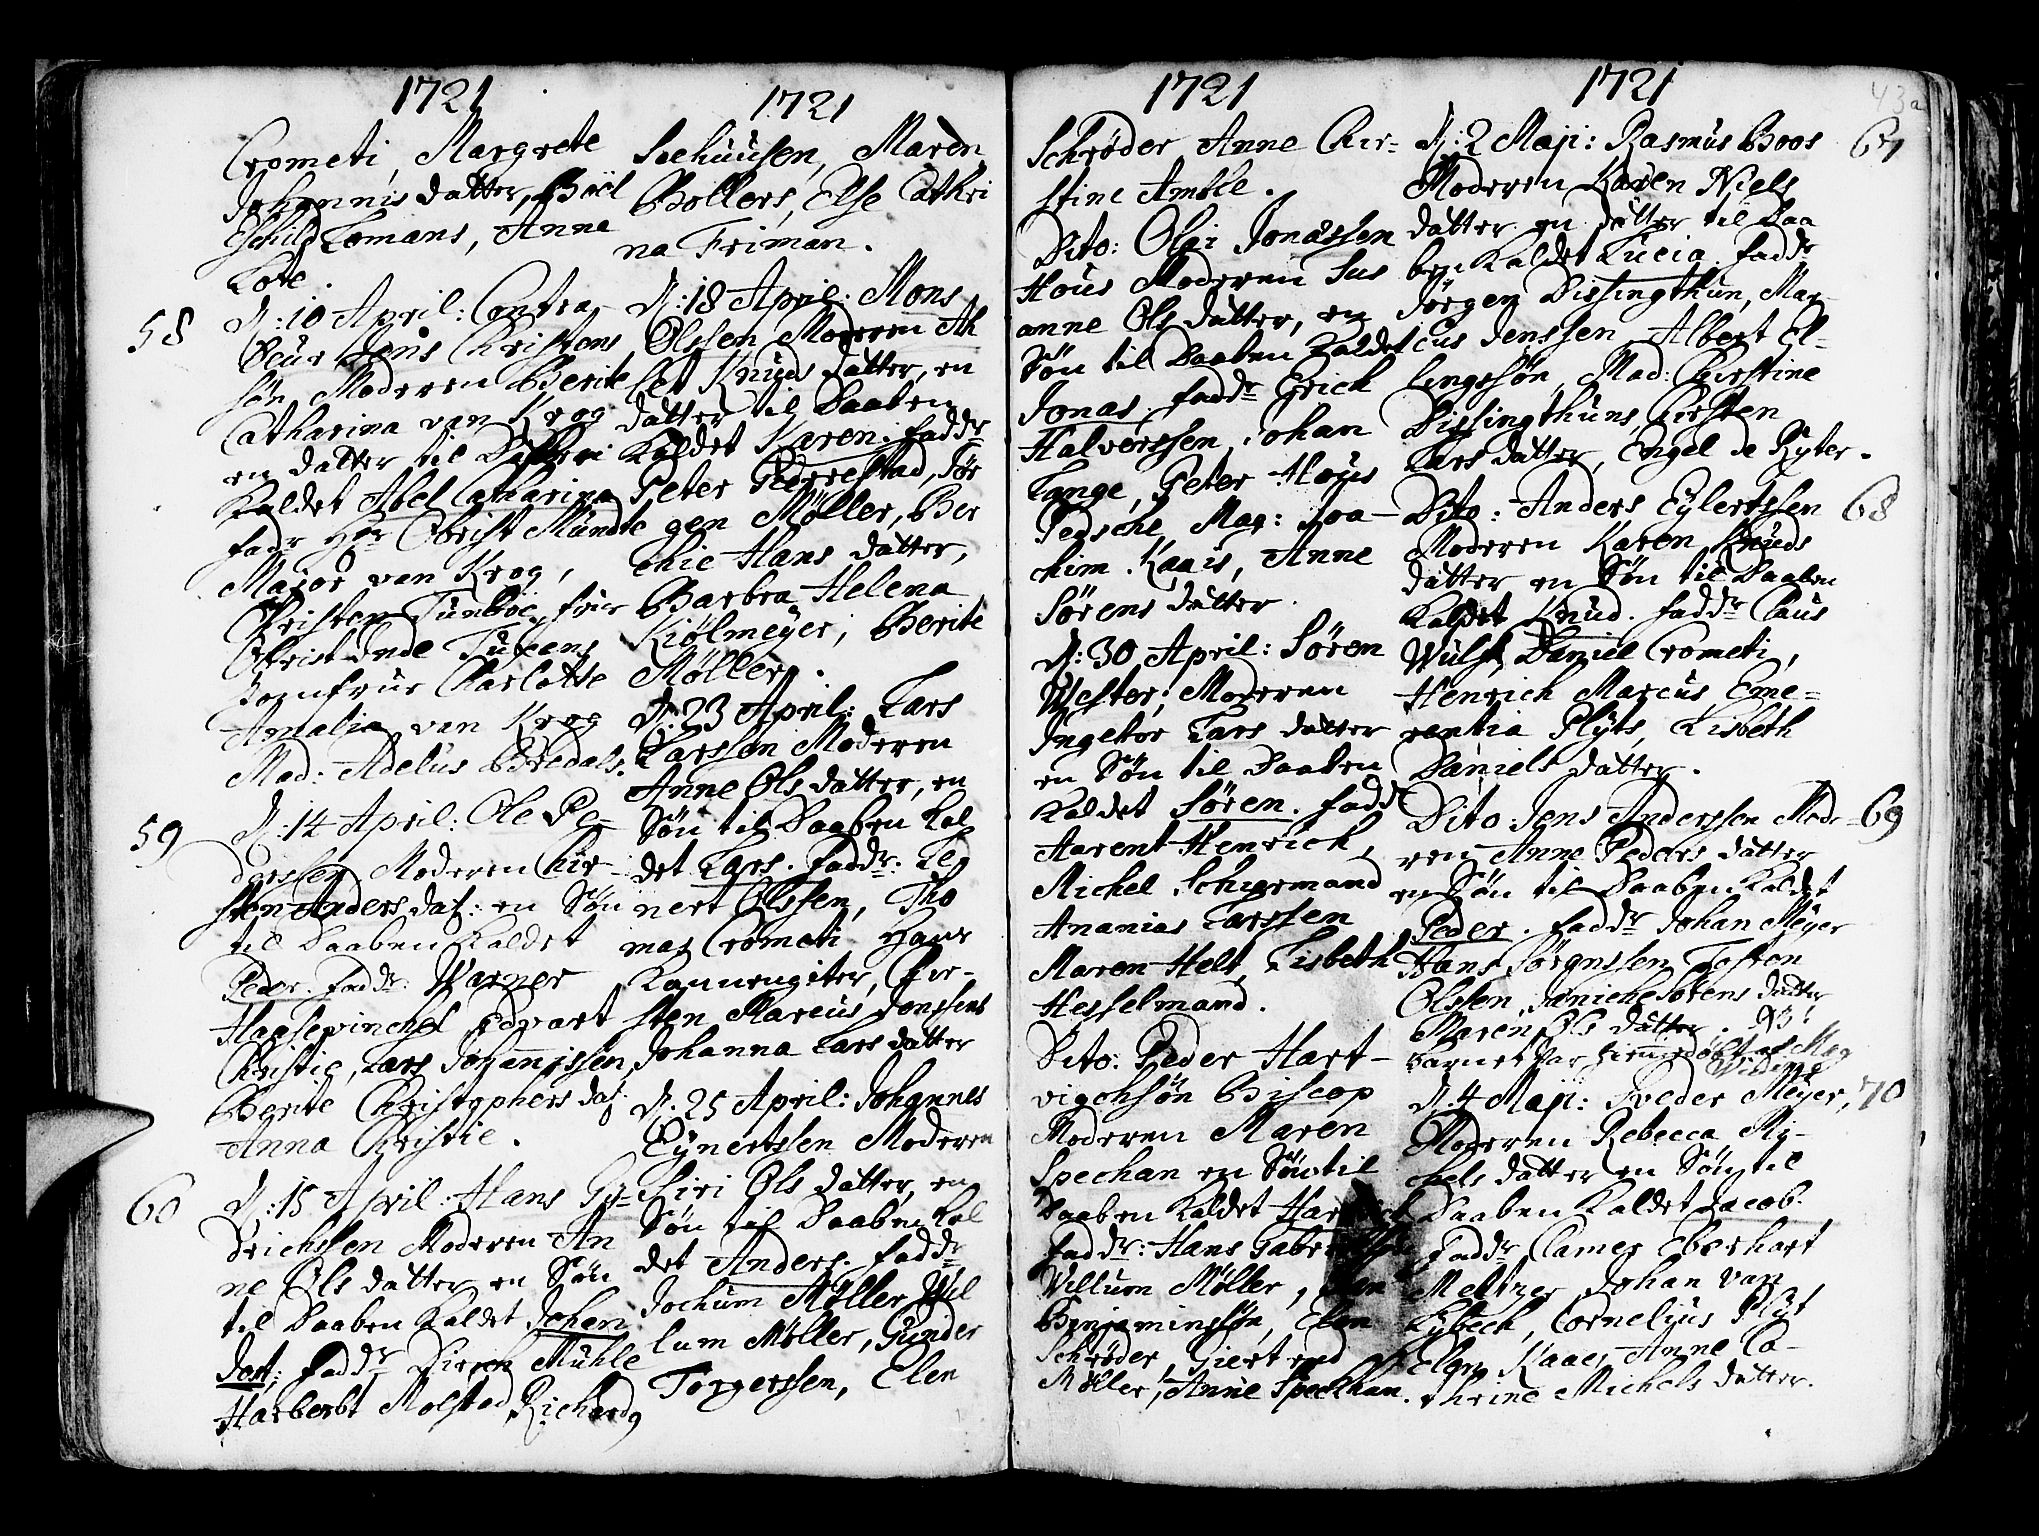 1721
Crometi, Margrete
Johannis datter, Boel
Eschild Lomans, Anne
Lote.
58
D: 10 April: Contra
Jens Christens
søn Moderen Berite
Catharina van Krog
en datter til
Kaldet Abel Catharina
fadr Hr Obrist Mundte
Major van Krog,
Christen
Obrist
Jomfrue Charlotte
Amalia van Krog
Mad: Adelus Bredals.
59
D: 14 April: Ole Pe-
derssen Moderen Kir-
sten Anders dat: en Søn
til Daaben Kaldet
Peder. fadr: Warner
Edvart
Christie, Lars Johannissen,
Berite Christophers dat:
Anna Christie.
60
D: 15 April: Hans
drichssen Moderen An
ne Ols datter en Søn
til Daaben Kaldet Johan
Jost; fadr Dirich Mühle
Harbert Molstad, Richard
1721
Seehuusen, Maren
Bollers, Else Cathri
na Friman.
D: 18 April: Mons
Olssen Moderen
Knuds datter, en
datter til Daaben
Kaldet Karen. fadr
Peter Gierrestad, Jør
gen Møller, Ber
thie Hans datter,
Barbra Helena
Kiølmeyer, Berite
Møller.
D: 23 April: Lars
Larssen Moderen
Anne Ols datter, en
Søn til Daaben Kal
det Lars. fadr: Leg
nert Olssen, Tho
mas Crometi, Hans
Kannengiter, Kir-
sten Marcus Jenssens
Johanna Lars datter
D: 25 April: Johannes
Eynertssen Moderen
Siri Ols datter, en
Søn til Daaben Kal
det Anders. fadr
Jochum Møller Wil
lum Møller, Gunder
Torgerssen, Elen
1721
Schrøder Anne Kir-
stine
Dito: Olgi Jonassen
Hous Moderen Sus
anne Ols datter, en
Søn til Daaben Kaldet
Jonas. fadr Erich
Halvorssen, Johan
Lange, Peter Hous
Mag: Joa-
chim Kaais, Anne
Sørens datter.
D: 30 April: Søren
Wester, Moderen
Ingebor Lars datter
en Søn til Daaben
Kaldet Søren. fadr
Aarent Henrich,
Michel
Ananias Larssen
Maren Helt, Lisbeth
Hesselmand.
Dito: Peder Hart-
vigchsøn Biscop
Moderen Maren
Spechan en Søn til
Daaben Kaldet
fadr: Hans
Villum Møller,
Benjaminsøn, Elen
Schrøder, Giertrud
Møller, Anne Speckhan.
1721
43a
67
D: 2 Maji: Rasmus Boos
Moderen Karen Niels
datter en datter til Daa
ben Kaldet Lucia. fadr
Jørgen Dissingthun, Mar-
cus Jenssen, Albert El-
lingssøn, Mad: Kirstine
Dissingthuns, Kirsten
Lars datter, Engel de Ryter.
68
Dito: Anders Eylertssen
Moderen Karen Knuds
datter en Søn til Daaben
Kaldet Knud. fadr Claus
Wulf, Daniel Crometi,
Henrich Marcus, Eme-
rentia Plyts, Lisbeth
Daniels datter.
69
Dito: Jens Anderssen Mode-
ren Anne Peders datter
en Søn til Daaben Kaldet
Peder. fadr Johan Meyer
Hans Jørgenssen Tosten
Olssen, Søniche Sørens datter
Maren Ols datter. NB:
barnet var hiemmedøbt af Mag
70
D: 4 Maji: Sveder Meyer,
Moderen Rebecca My-
chels datter en Søn til
Daaben Kaldet Jacob.
fadr Eberhart
Meltzer, Johan van
Lybech, Cornelius Plyt
Elen Kaae, Anne Ca-
thrine Michels datter.